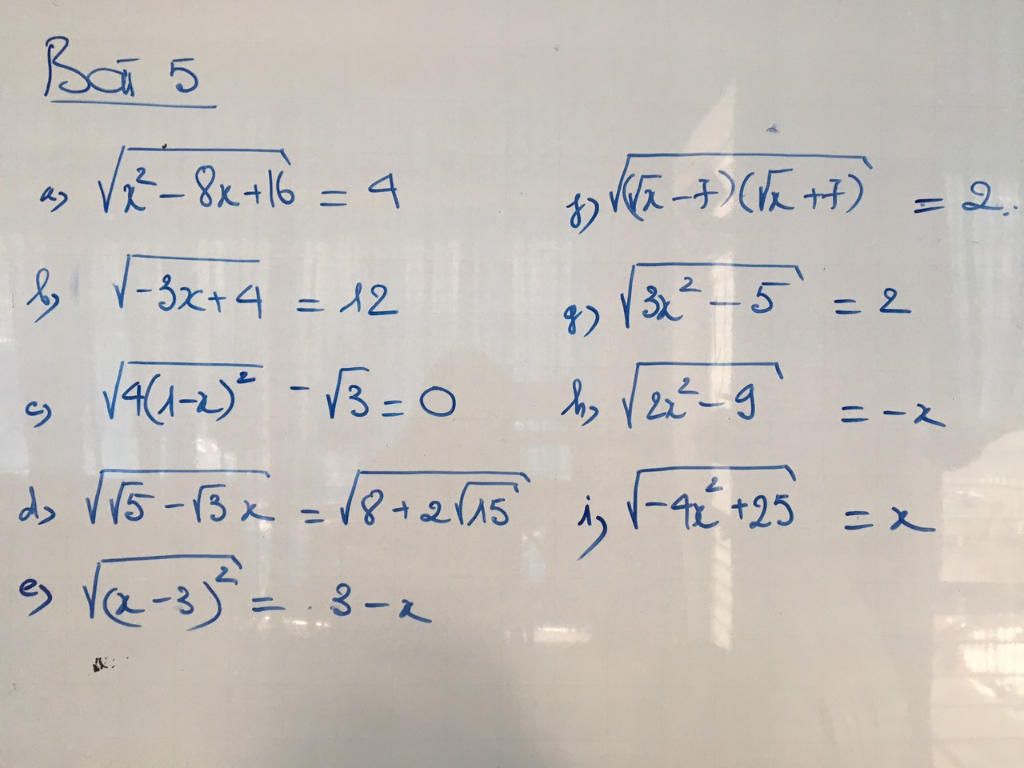 Bài 5
a) √(x² - 8x + 16) = 4
b) √(-3x + 4) = 12
c) √(4(1-x)²) - √3 = 0
d) √(√5 - √3 x) = √(8 + 2√15)
e) √((x - 3)²) = 3 - x
f) √((√x - 7)(√x + 7)) = 2
g) √(3x² - 5) = 2
h) √(2x² - 9) = -x
i) √(-4x² + 25) = x